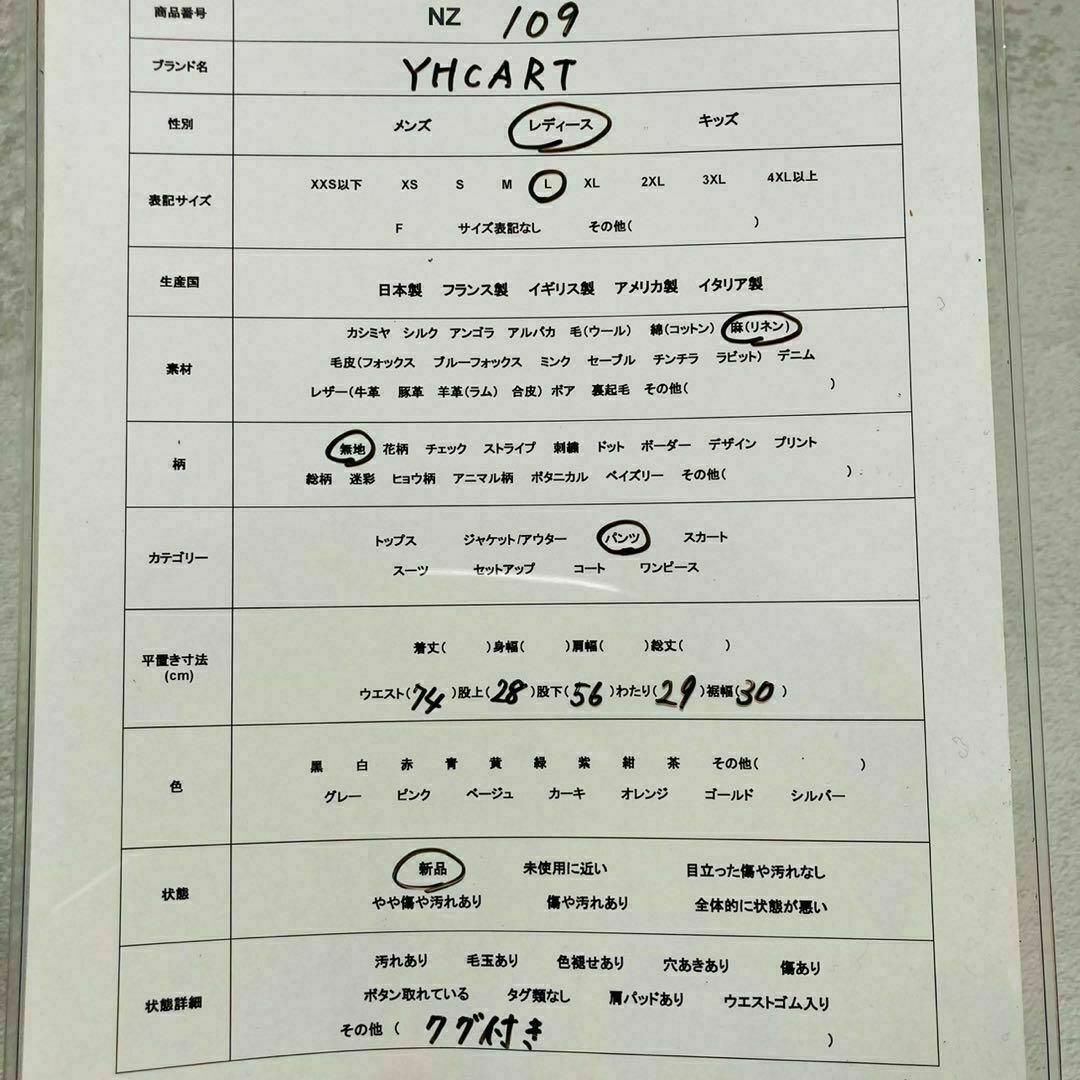 商品番号 NZ 109
ブランド名 YHCART
性別 メンズ レディース キッズ
表記サイズ XXS以下 XS S M L XL 2XL 3XL 4XL以上
F サイズ表記なし その他( )
生産国 日本製 フランス製 イギリス製 アメリカ製 イタリア製
素材 カシミヤ シルク アンゴラ アルパカ 毛(ウール) 綿(コットン) 麻(リネン)
毛皮(フォックス ブルーフォックス ミンク セーブル チンチラ ラビット) デニム
レザー(牛革 豚革 羊革(ラム) 合皮) ボア 裏起毛 その他( )
柄 無地 花柄 チェック ストライプ 刺繍 ドット ボーダー デザイン プリント
総柄 迷彩 ヒョウ柄 アニマル柄 ボタニカル ペイズリー その他( )
カテゴリー トップス ジャケット/アウター パンツ スカート
スーツ セットアップ コート ワンピース
平置き寸法
(cm)
着丈( )身幅( )肩幅( )総丈( )
ウエスト(74)股上(28)股下(56)わたり(29)裾幅(30)
色 黒 白 赤 青 黄 緑 紫 紺 茶 その他( )
グレー ピンク ベージュ カーキ オレンジ ゴールド シルバー
状態 新品 未使用に近い 目立った傷や汚れなし
やや傷や汚れあり 傷や汚れあり 全体的に状態が悪い
状態詳細 汚れあり 毛玉あり 色褪せあり 穴あきあり 傷あり
ボタン取れている タグ類なし 肩パッドあり ウエストゴム入り
その他 ( タグ付き )